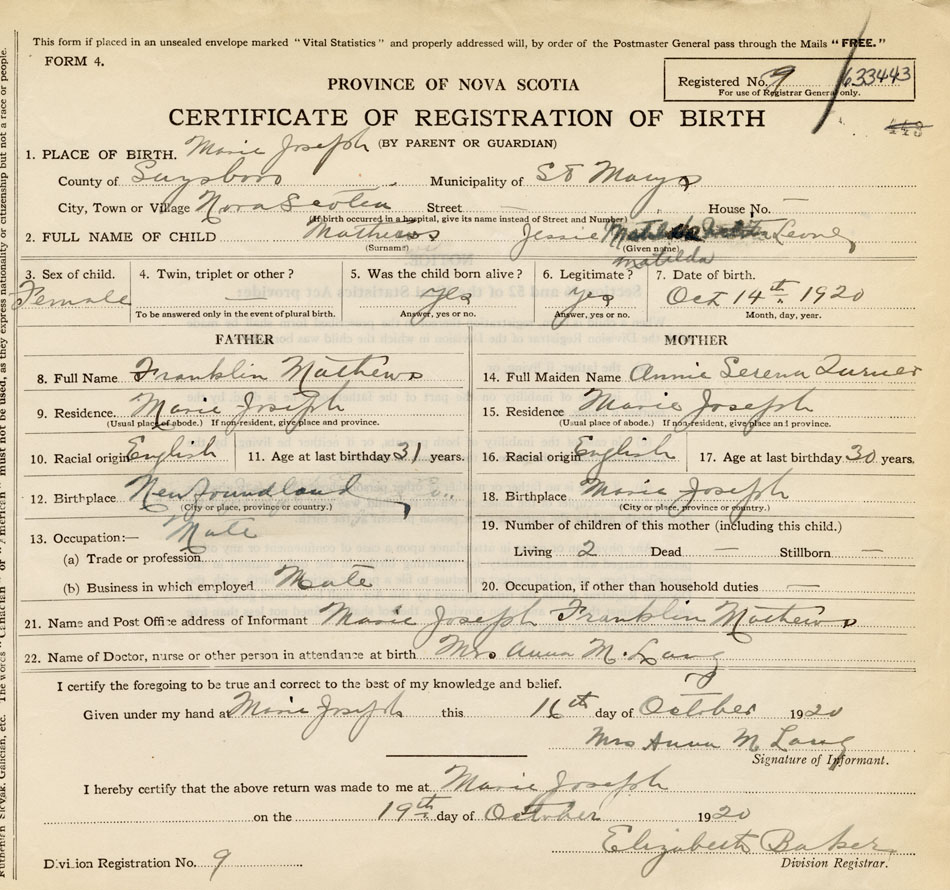 This form if placed in an unsealed envelope marked "Vital Statistics" and properly addressed will, by order of the Postmaster General pass through the Mails "FREE."
FORM 4.
Registered No. 9 633443
For use of Registrar General only.
PROVINCE OF NOVA SCOTIA
CERTIFICATE OF REGISTRATION OF BIRTH
(BY PARENT OR GUARDIAN)
1. PLACE OF BIRTH. Marie Joseph
County of Guysboro Municipality of St Marys
City, Town or Village Nova Scotia Street — House No. —
(If birth occurred in a hospital, give its name instead of Street and Number)
2. FULL NAME OF CHILD Mathews Jessie Matilda Leoney
(Surname) (Given name)
matilda
3. Sex of child. Female
4. Twin, triplet or other? —
To be answered only in the event of plural birth.
5. Was the child born alive? yes
Answer, yes or no.
6. Legitimate? yes
Answer, yes or no.
7. Date of birth. Oct 14th 1920
Month, day, year.
FATHER
8. Full Name Franklin Mathews
9. Residence. Marie Joseph
(Usual place of abode.) If non-resident, give place and province.
10. Racial origin English 11. Age at last birthday 31 years.
12. Birthplace Newfoundland
(City or place, province or country.)
13. Occupation:— Mate
(a) Trade or profession
(b) Business in which employed Mate
MOTHER
14. Full Maiden Name Annie Serena Turner
15. Residence Marie Joseph
(Usual place of abode.) If non-resident, give place and province.
16. Racial origin English 17. Age at last birthday 30 years.
18. Birthplace Marie Joseph
(City or place, province or country.)
19. Number of children of this mother (including this child.)
Living 2 Dead — Stillborn —
20. Occupation, if other than household duties —
21. Name and Post Office address of Informant Marie Joseph Franklin Mathews
22. Name of Doctor, nurse or other person in attendance at birth Mrs Anna M. Lang
I certify the foregoing to be true and correct to the best of my knowledge and belief.
Given under my hand at Marie Joseph this 16th day of October 1920
Mrs Anna M Lang
Signature of Informant.
I hereby certify that the above return was made to me at Marie Joseph
on the 19th day of October 1920
Elizabeth Baker
Division Registrar.
Division Registration No. 9
Ruthenian, Slovak, Galician, etc. The words "Canadian" or "American" must not be used, as they express nationality or citizenship but not a race or people.